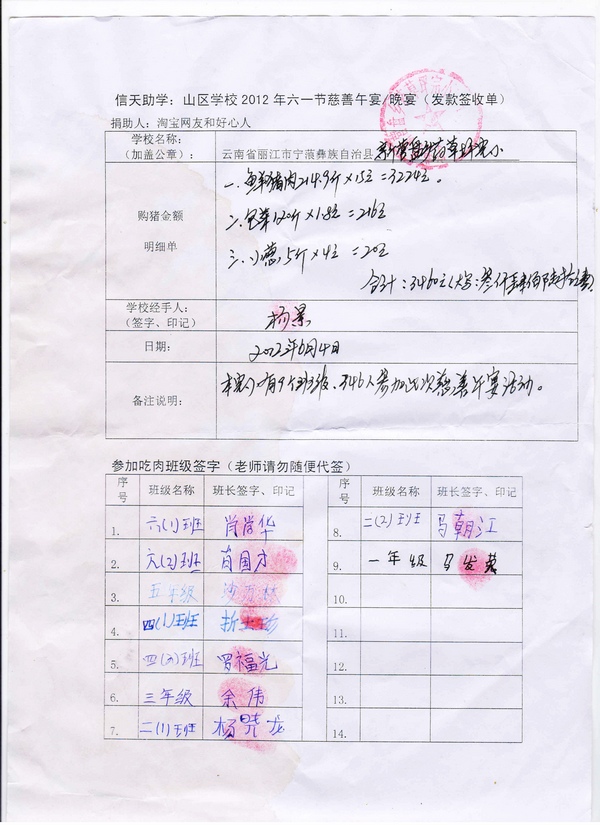 信天助学：山区学校2012年六一节慈善午宴/晚宴（发款签收单）
捐助人：淘宝网友和好心人
学校名称：
（加盖公章）：
云南省丽江市宁蒗彝族自治县 新营盘 药草坪完小
购猪金额
明细单
一、鲜猪肉214.9斤×15元=3224元。
二、白菜120斤×1.8元=216元
三、小葱，5斤×4元=20元
合计：3460元（大写：叁仟肆佰陆拾元整）
学校经手人：
（签字、印记）
杨景
日期：
2012年6月4日
备注说明：
本完小有9个班级、346人参加此次慈善午宴活动。
参加吃肉班级签字（老师请勿随便代签）
序号 班级名称 班长签字、印记 序号 班级名称 班长签字、印记
1. 六(1)班 肖学华 8. 二(2)班 马朝江
2. 六(2)班 肖国才 9. 一年级 马发英
3. 五年级 10.
4. 四(1)班 11.
5. 四(2)班 罗福光 12.
6. 三年级 余伟 13.
7. 二(1)班 杨晓龙 14.